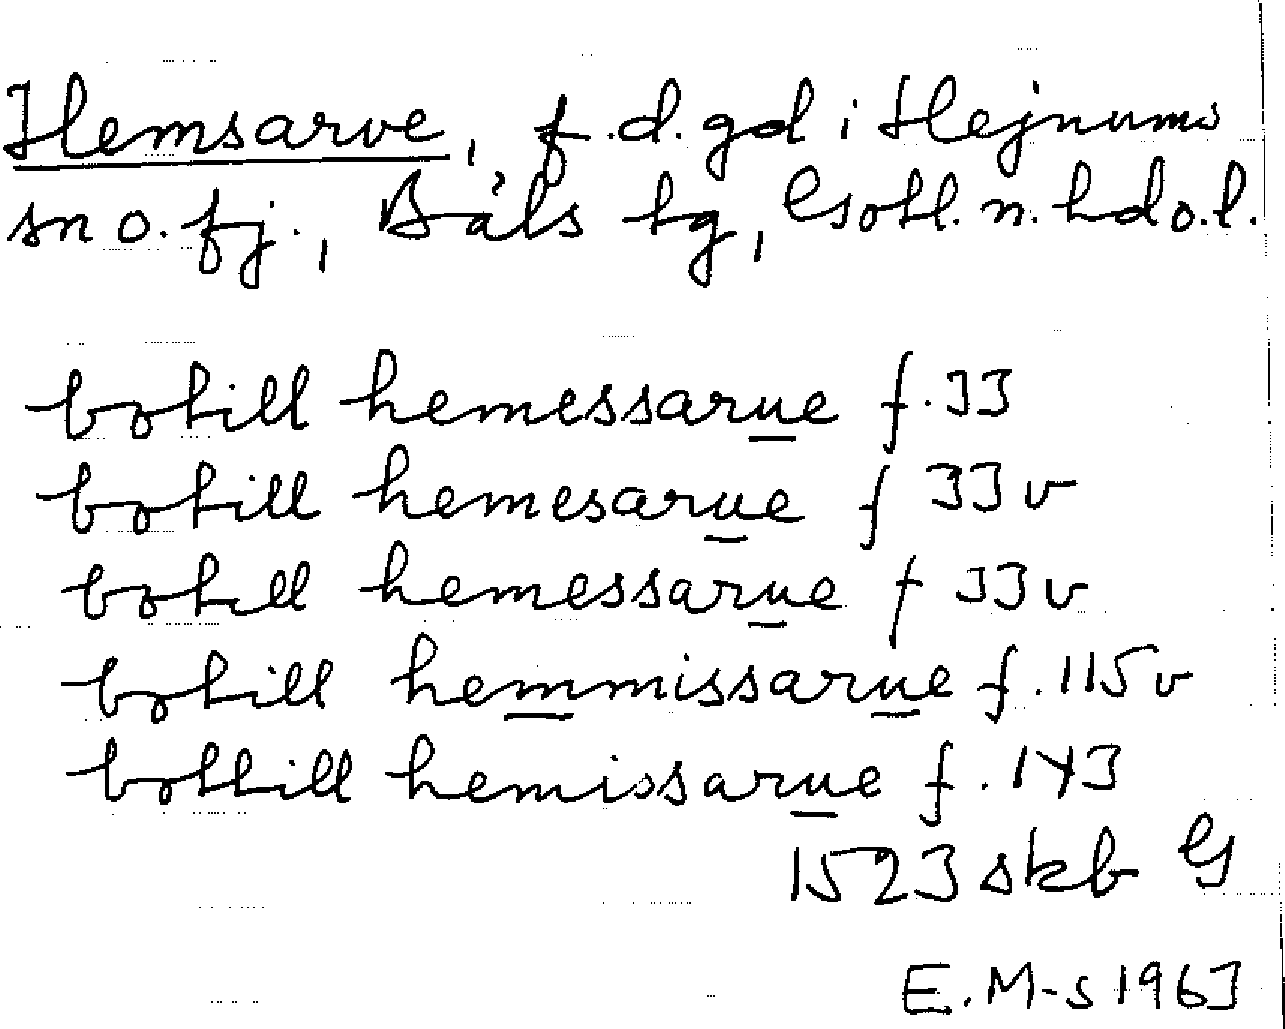 Hemsarve, f.d. gd i Hejnums
sn o. fj., Bäls tg, Gotl. n. hd o. l.
botill hemessarue f. 33
botill hemesarue f 33 v
botill hemessarue f 33 v
botill hemmissarue f. 115 v
bottill hemissarue f. 143
1523 skb G
E. M-s 1963